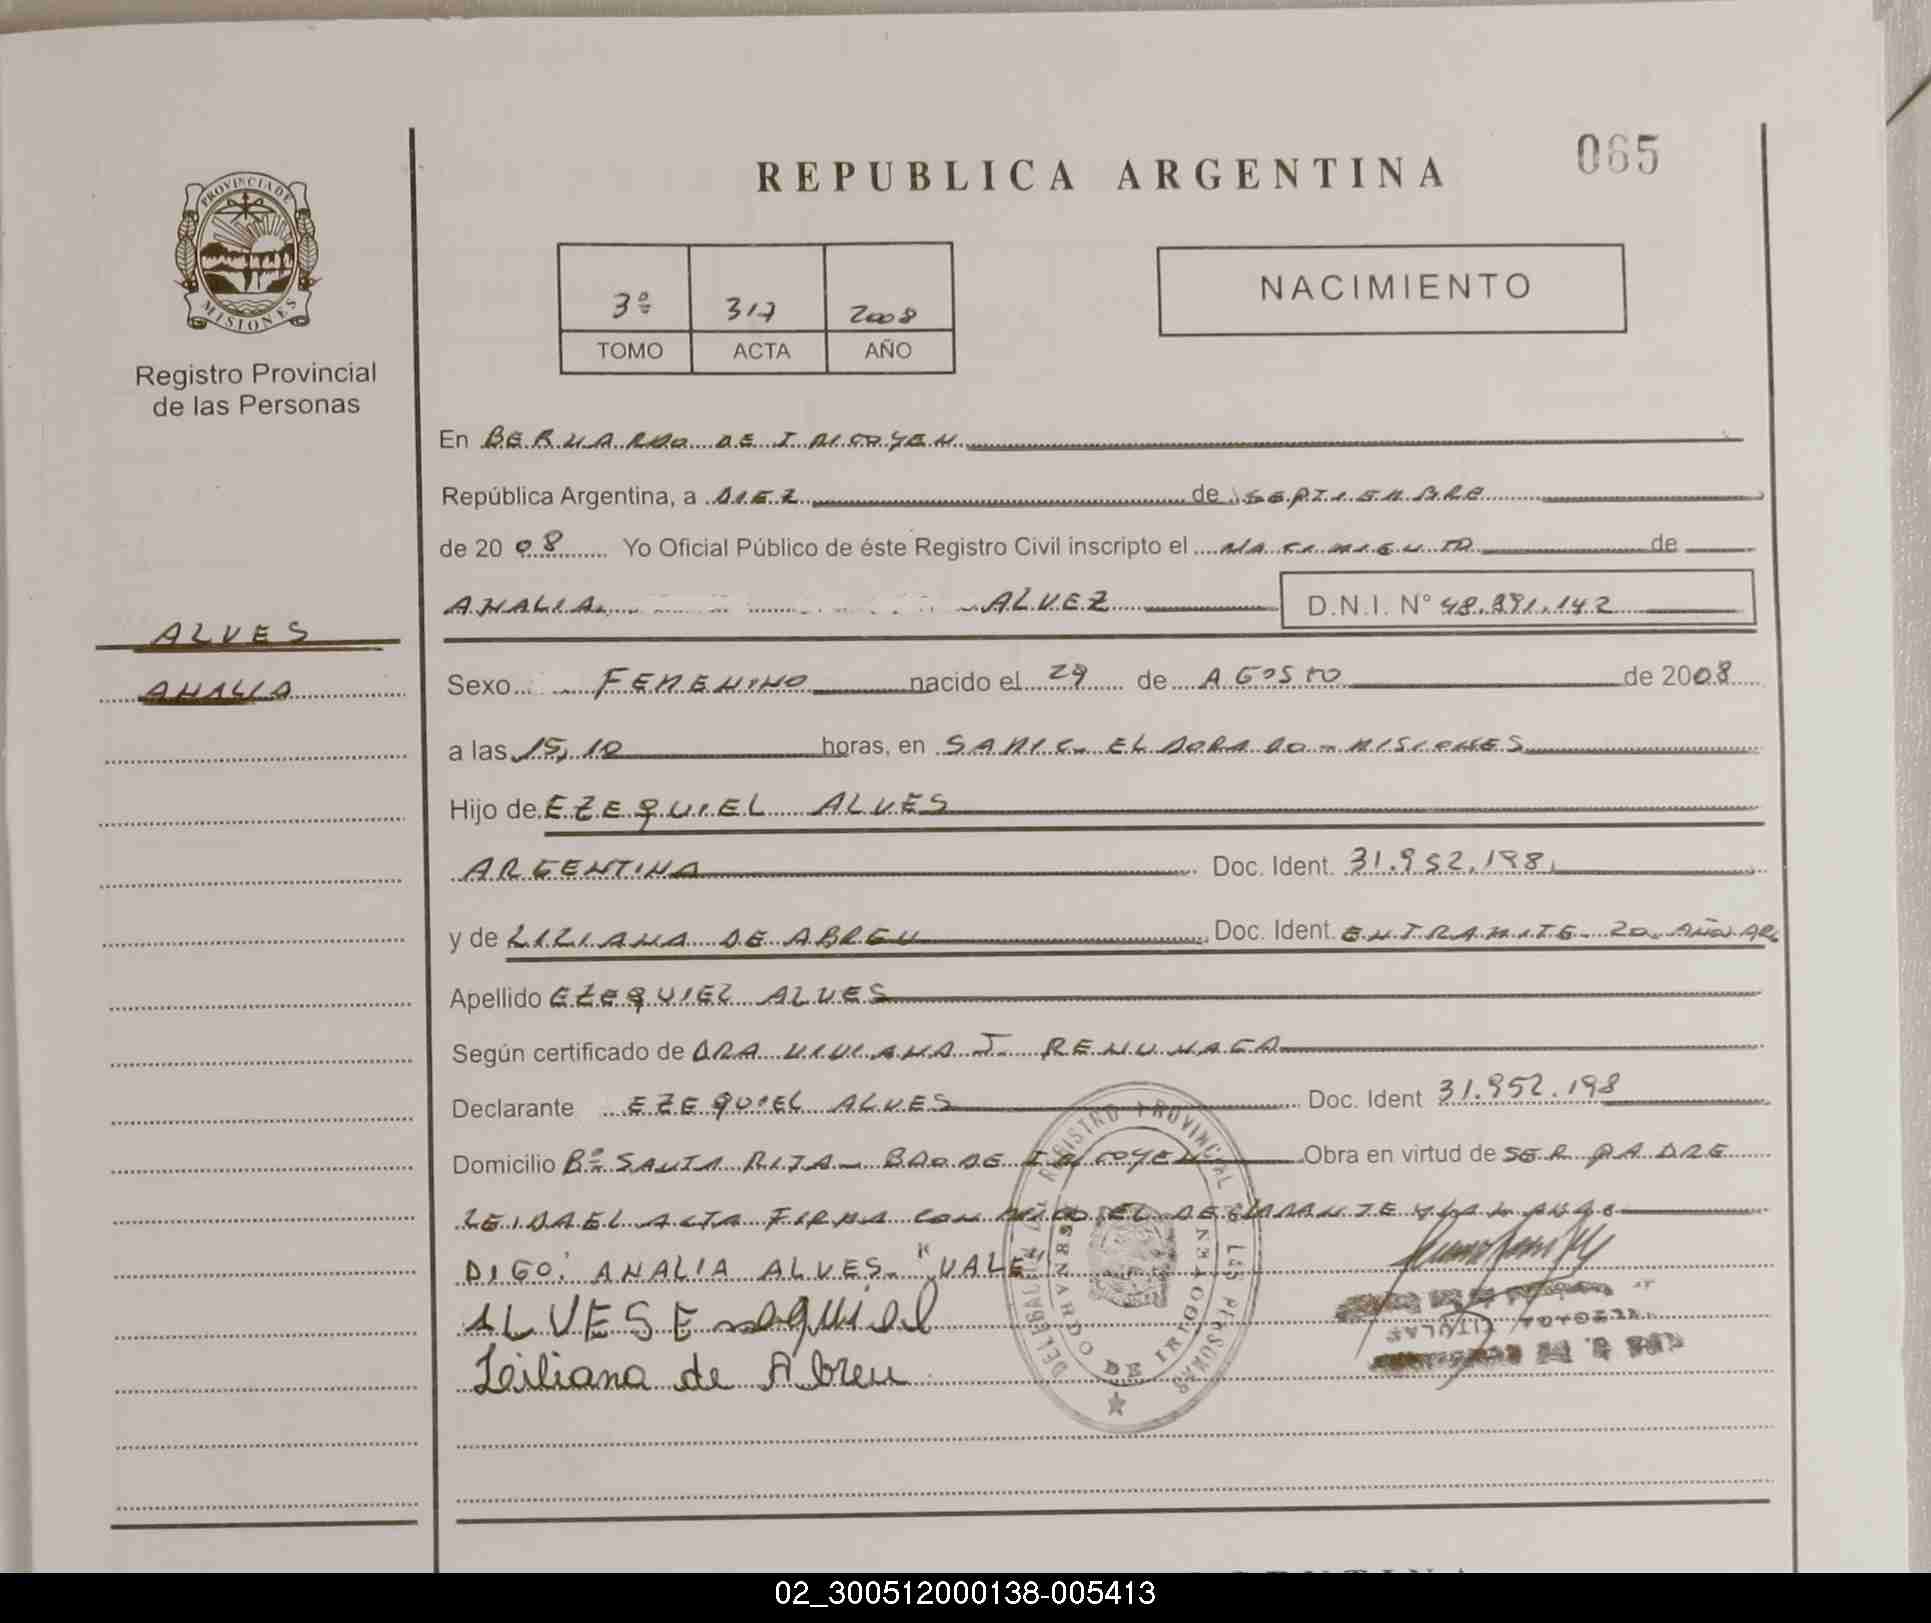 REPUBLICA ARGENTINA
065
PROVINCIA DE
MISIONES
Registro Provincial
de las Personas
3º 317 2008
TOMO ACTA AÑO
NACIMIENTO
En BERNARDO DE IRIGOYEN
República Argentina, a DIEZ de SEPTIEMBRE
de 20 08 Yo Oficial Público de éste Registro Civil inscripto el NACIMIENTO de
ANALIA ALVEZ D.N.I. Nº 48.891.142
ALVES
ANALIA
Sexo FEMENINO nacido el 29 de AGOSTO de 2008
a las 15,10 horas, en SAMIC. ELDORADO - MISIONES
Hijo de EZEQUIEL ALVES
ARGENTINA Doc. Ident. 31.952.198
y de LILIANA DE ABREU Doc. Ident. EN TRAMITE - 20 AÑOS AR.
Apellido EZEQUIEL ALVES
Según certificado de DRA VIVIANA J.
Declarante EZEQUIEL ALVES Doc. Ident 31.952.198
Domicilio Bº SANTA RITA - BDO DE IRIGOYEN Obra en virtud de SER PADRE
LEIDA EL ACTA FIRMA CONMIGO EL DECLARANTE Y LA
DIGO: ANALIA ALVES - "VALE"
ALVES Esequiel
Liliana de Abreu
DELEGACION DEL REGISTRO PROVINCIAL DE LAS PERSONAS
BERNARDO DE IRIGOYEN
TITULAR
02_300512000138-005413